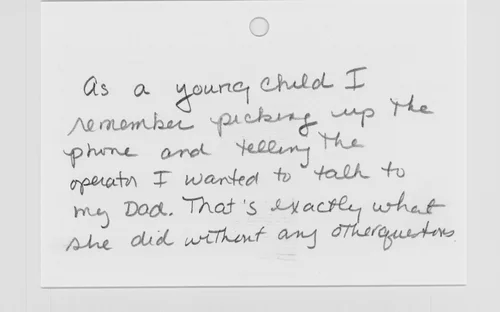 As a young child I
remember picking up the
phone and telling the
operator I wanted to talk to
my Dad. That's exactly what
she did without any other questions